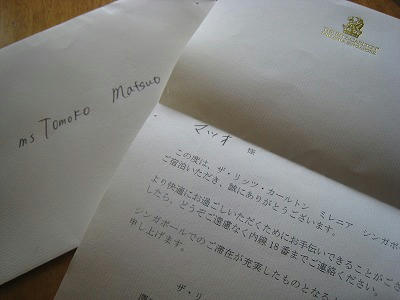 ms Tomoko Matsuo
マツオ 様
この度は、ザ・リッツ・カールトン ミレニア シンガポ
ご宿泊いただき、誠にありがとうございます。
より快適にお過ごしいただくためにお手伝いできることがござ
したら、どうぞご遠慮なく内線 18 番までご連絡ください
申し上げます。
シンガポールでのご滞在が充実したものとなる
ザ・リ